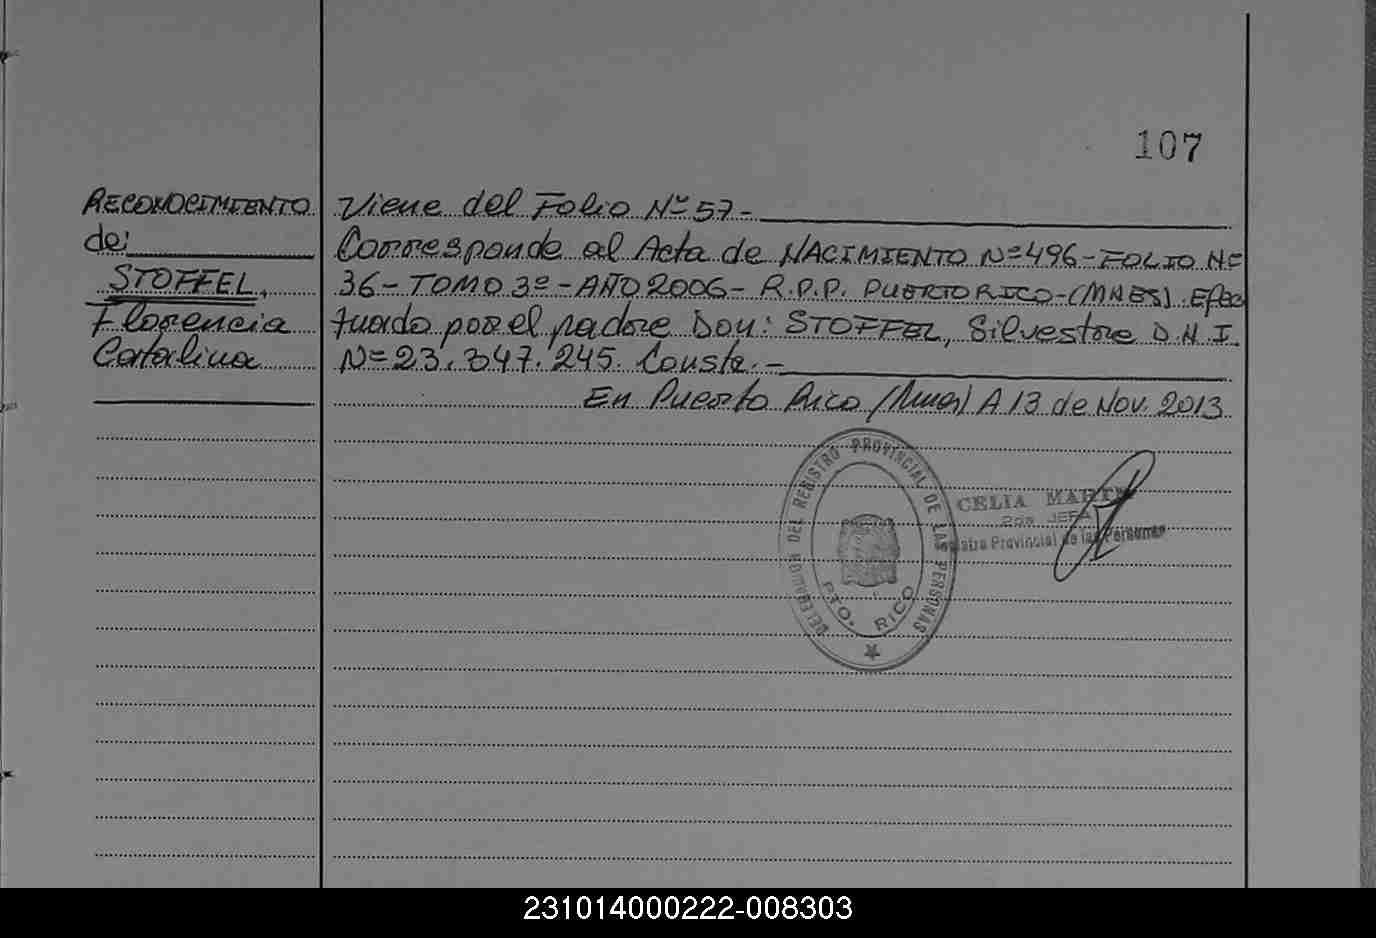 107
RECONOCIMIENTO
de:
STOFFEL,
Florencia
Catalina
Viene del Folio Nº 57-
Corresponde al Acta de NACIMIENTO Nº 496-FOLIO Nº
36-TOMO 3º-AÑO 2006- R.P.P. PUERTO RICO-(MNES). Efec
tuado por el padre Don: STOFFEL, Silvestre D.N.I.
Nº 23.347.245. Conste.-
En Puerto Rico (Mnes) A 13 de Nov. 2013
DELEGACION DEL REGISTRO PROVINCIAL DE LAS PERSONAS
PTO. RICO
CELIA
JEFA
Provincial de las Personas
231014000222-008303